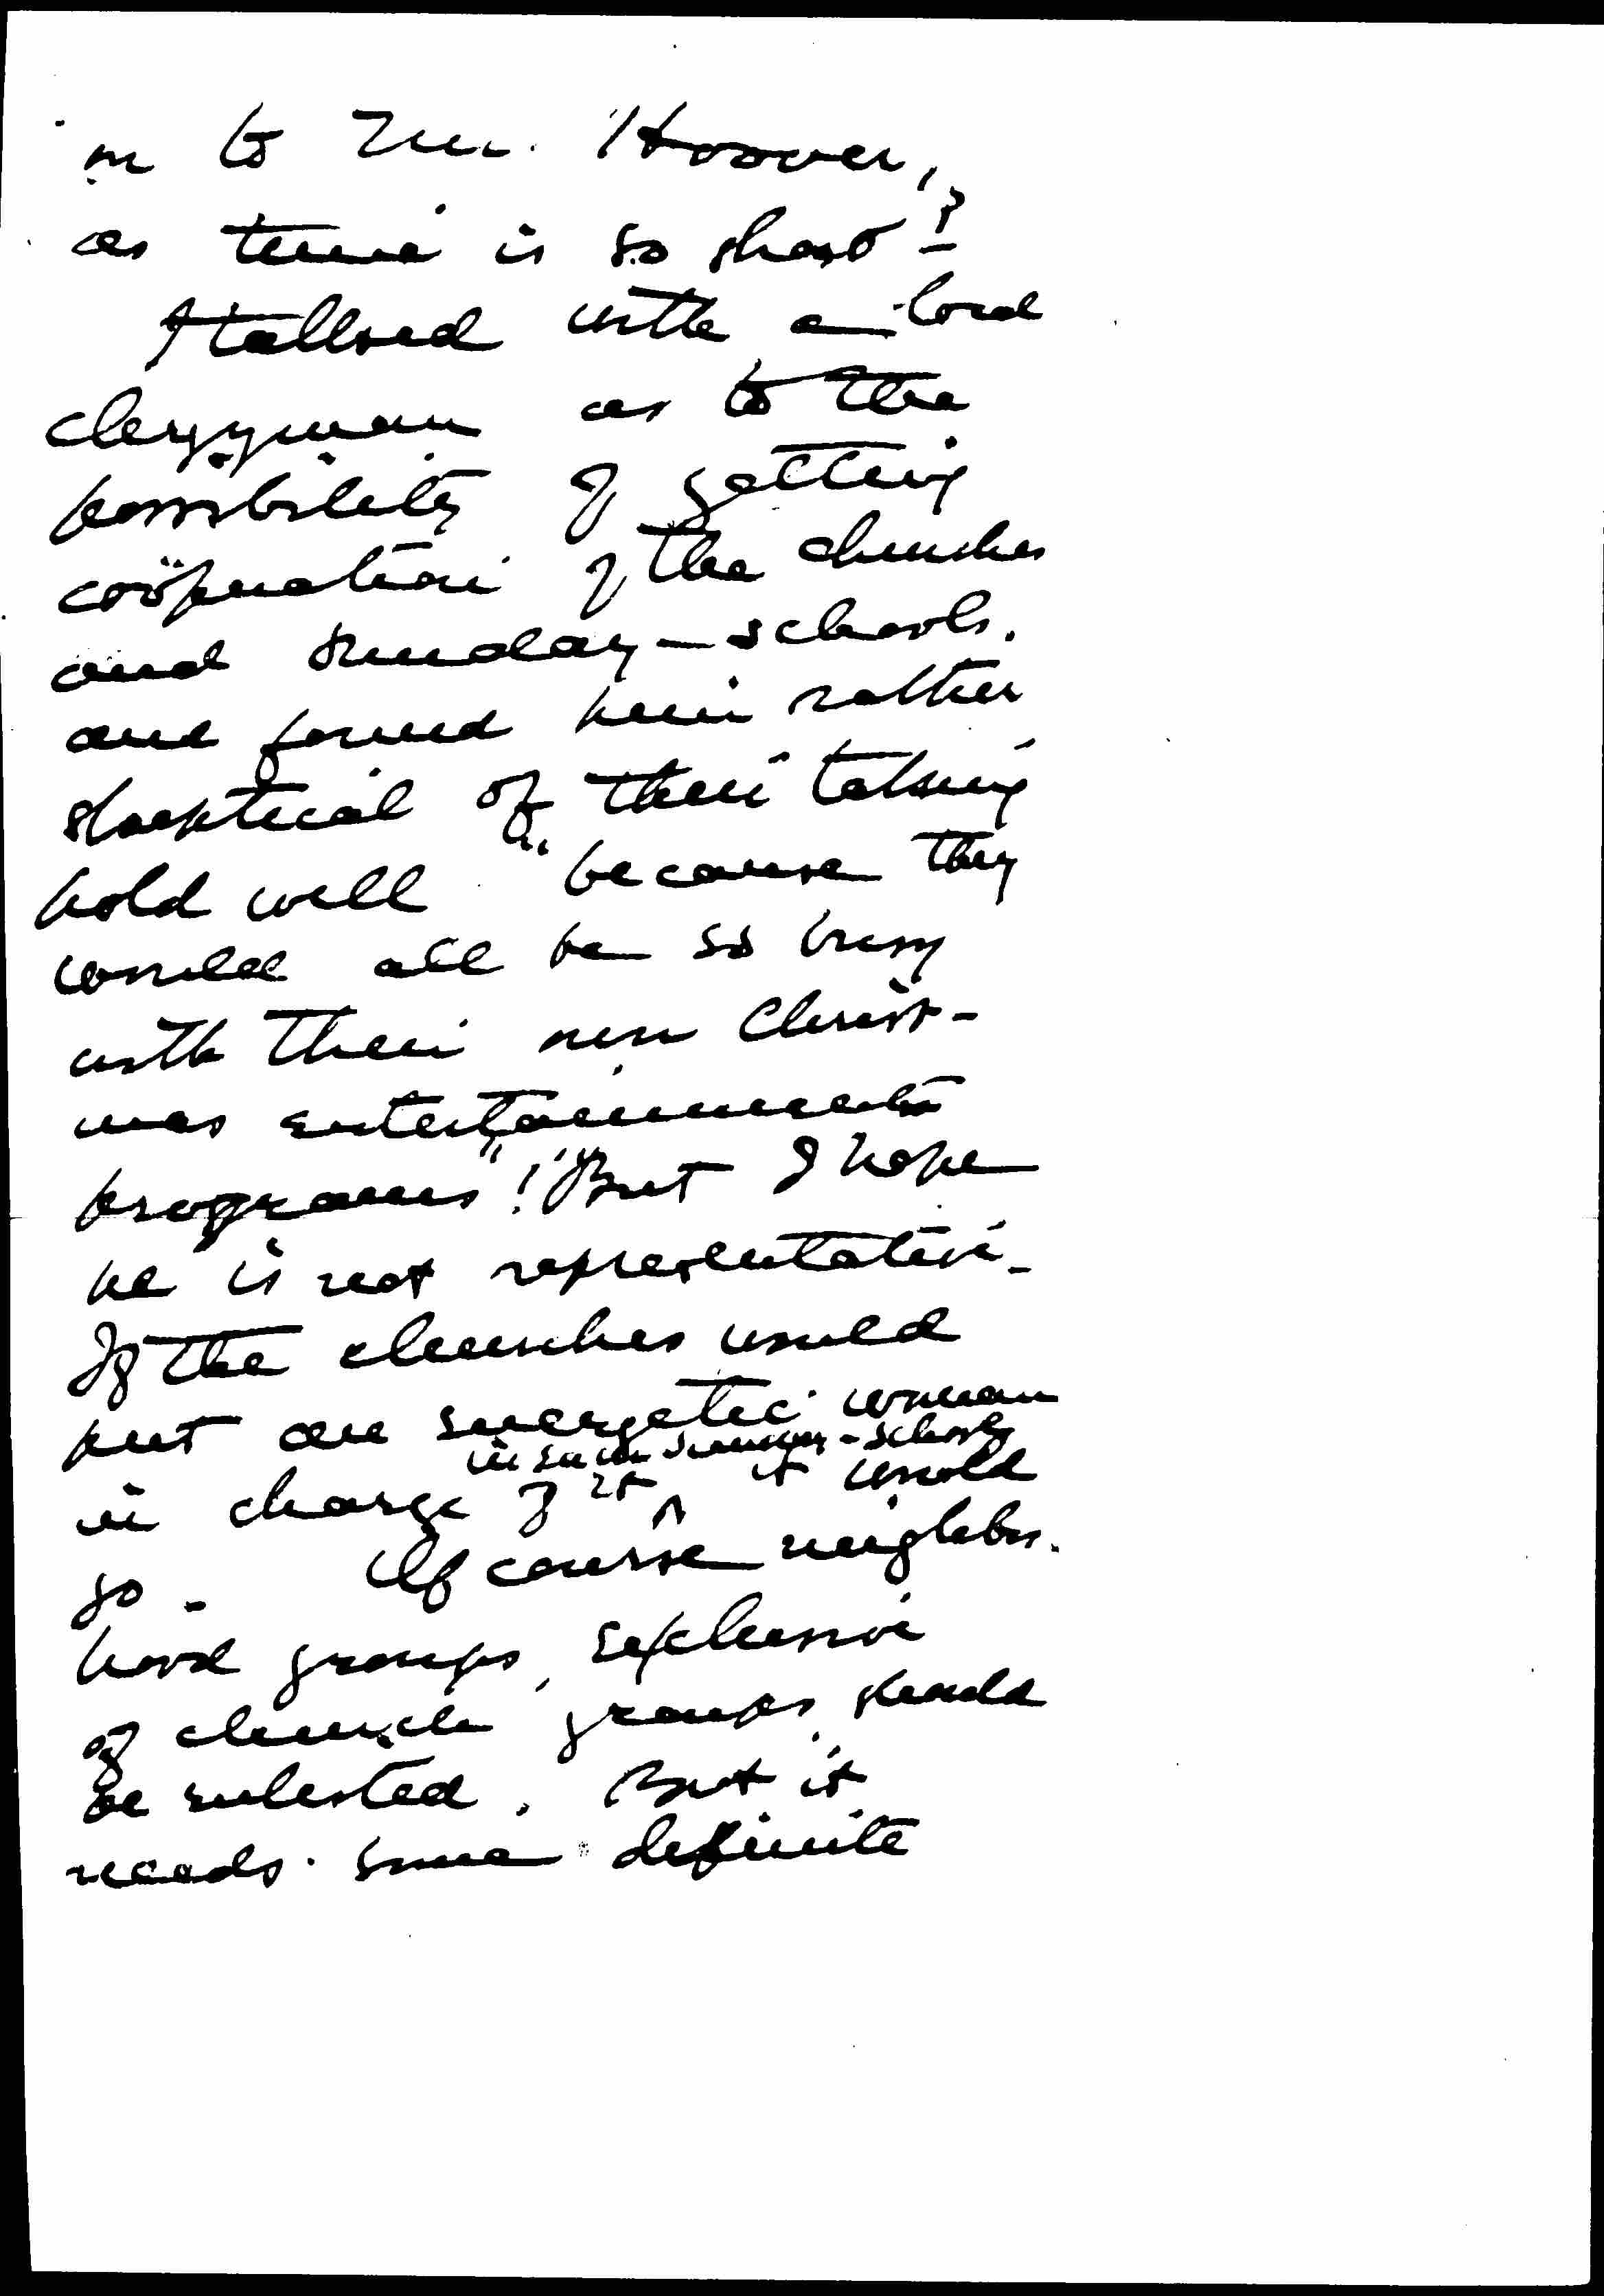 on to Mr. Hoover,
as time is so short?
I talked with a local
clergyman as to the
possibility of getting
coöperation of the churches
and Sunday-schools.
and found him rather
skeptical of their taking
hold well "because they
would all be so busy
with their own Christ-
mas entertainments
programs"! But I hope
he is not representative.
If the churches would
put an energetic woman
in each Sunday-school,
in charge of it ^ it would
go. Of course neighbor-
hood groups, exclusive
of church groups should
be enlisted. But it
needs some definite